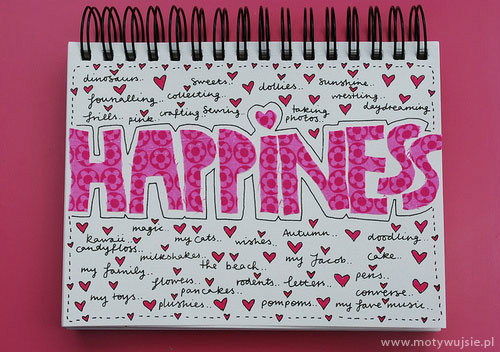 dinosaurs.. sweets.. dollies.. sunshine..
journalling.. collecting.. wrestling..
frills.. pink.. crafting.. sewing taking photos.. daydreaming..
HAPPINESS
kawaii.. magic.. my cats.. wishes.. Autumn.. doodling..
candyfloss.. milkshakes.. the beach.. my Jacob.. cake..
my family.. flowers.. rodents.. letters.. pens..
my toys.. pancakes.. converse..
plushies.. pompoms.. my fave music..
www.motywujsie.pl